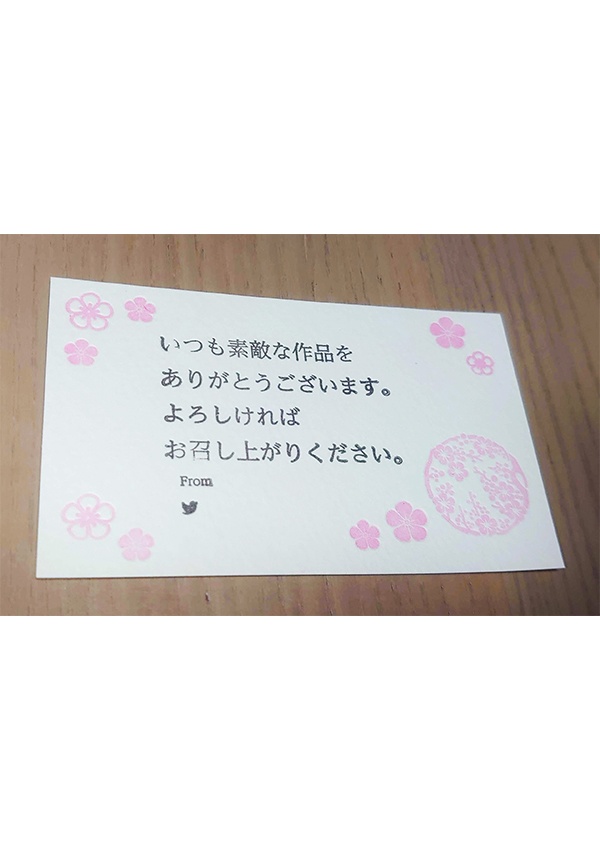 いつも素敵な作品を
ありがとうございます。
よろしければ
お召し上がりください。
From